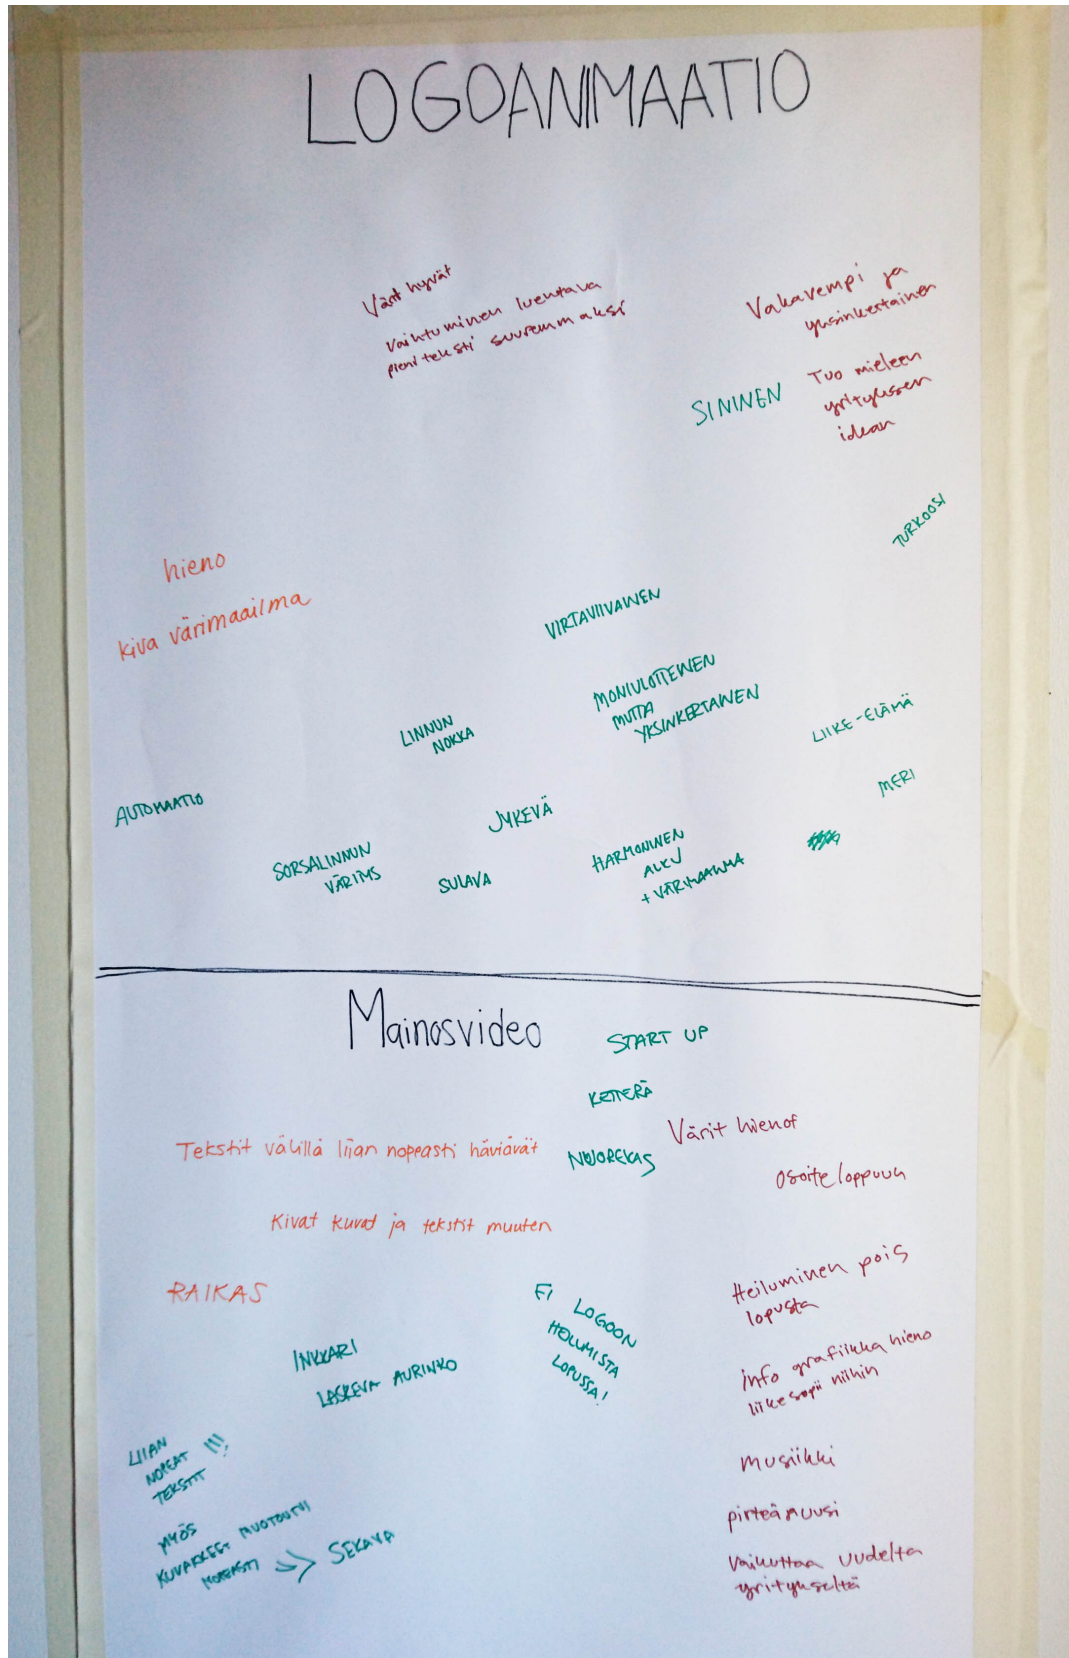 LOGOANIMAATIO
Värit hyvät
vaihtuminen luentava
pieni teksti suuremmaksi
Vakavempi ja
yksinkertainen
SININEN
Tuo mieleen
yrityksen
idean
TURKOOSI
hieno
kiva värimaailma
VIRTAVIIVAINEN
MONIULOTTEINEN
MUTTA
YKSINKERTAINEN
LINNUN
NOKKA
LIIKE-ELÄMÄ
MERI
AUTOMAATIO
JYKEVÄ
SORSALINNUN
VÄRITYS
SULAVA
HARMONINEN
ALKU
+ VÄRIMAAILMA
Mainosvideo
START UP
KETTERÄ
Värit hienot
Tekstit välillä liian nopeasti häviävät
NUOREKAS
Osoite loppuun
Kivat kuvat ja tekstit muuten
RAIKAS
Heiluminen pois
lopusta
EI LOGOON
HEILUMISTA
LOPUSSA!
INKKARI
LASKEVA AURINKO
info grafiikka hieno
liike sopii niihin
LIIAN
NOPEAT !!!
TEKSTIT
musiikki
MYÖS
KUVAKKEET MUOTOUTUI
NOPEASTI => SEKAVA
pirteä ja uusi
Vaikuttaa uudelta
yritykseltä